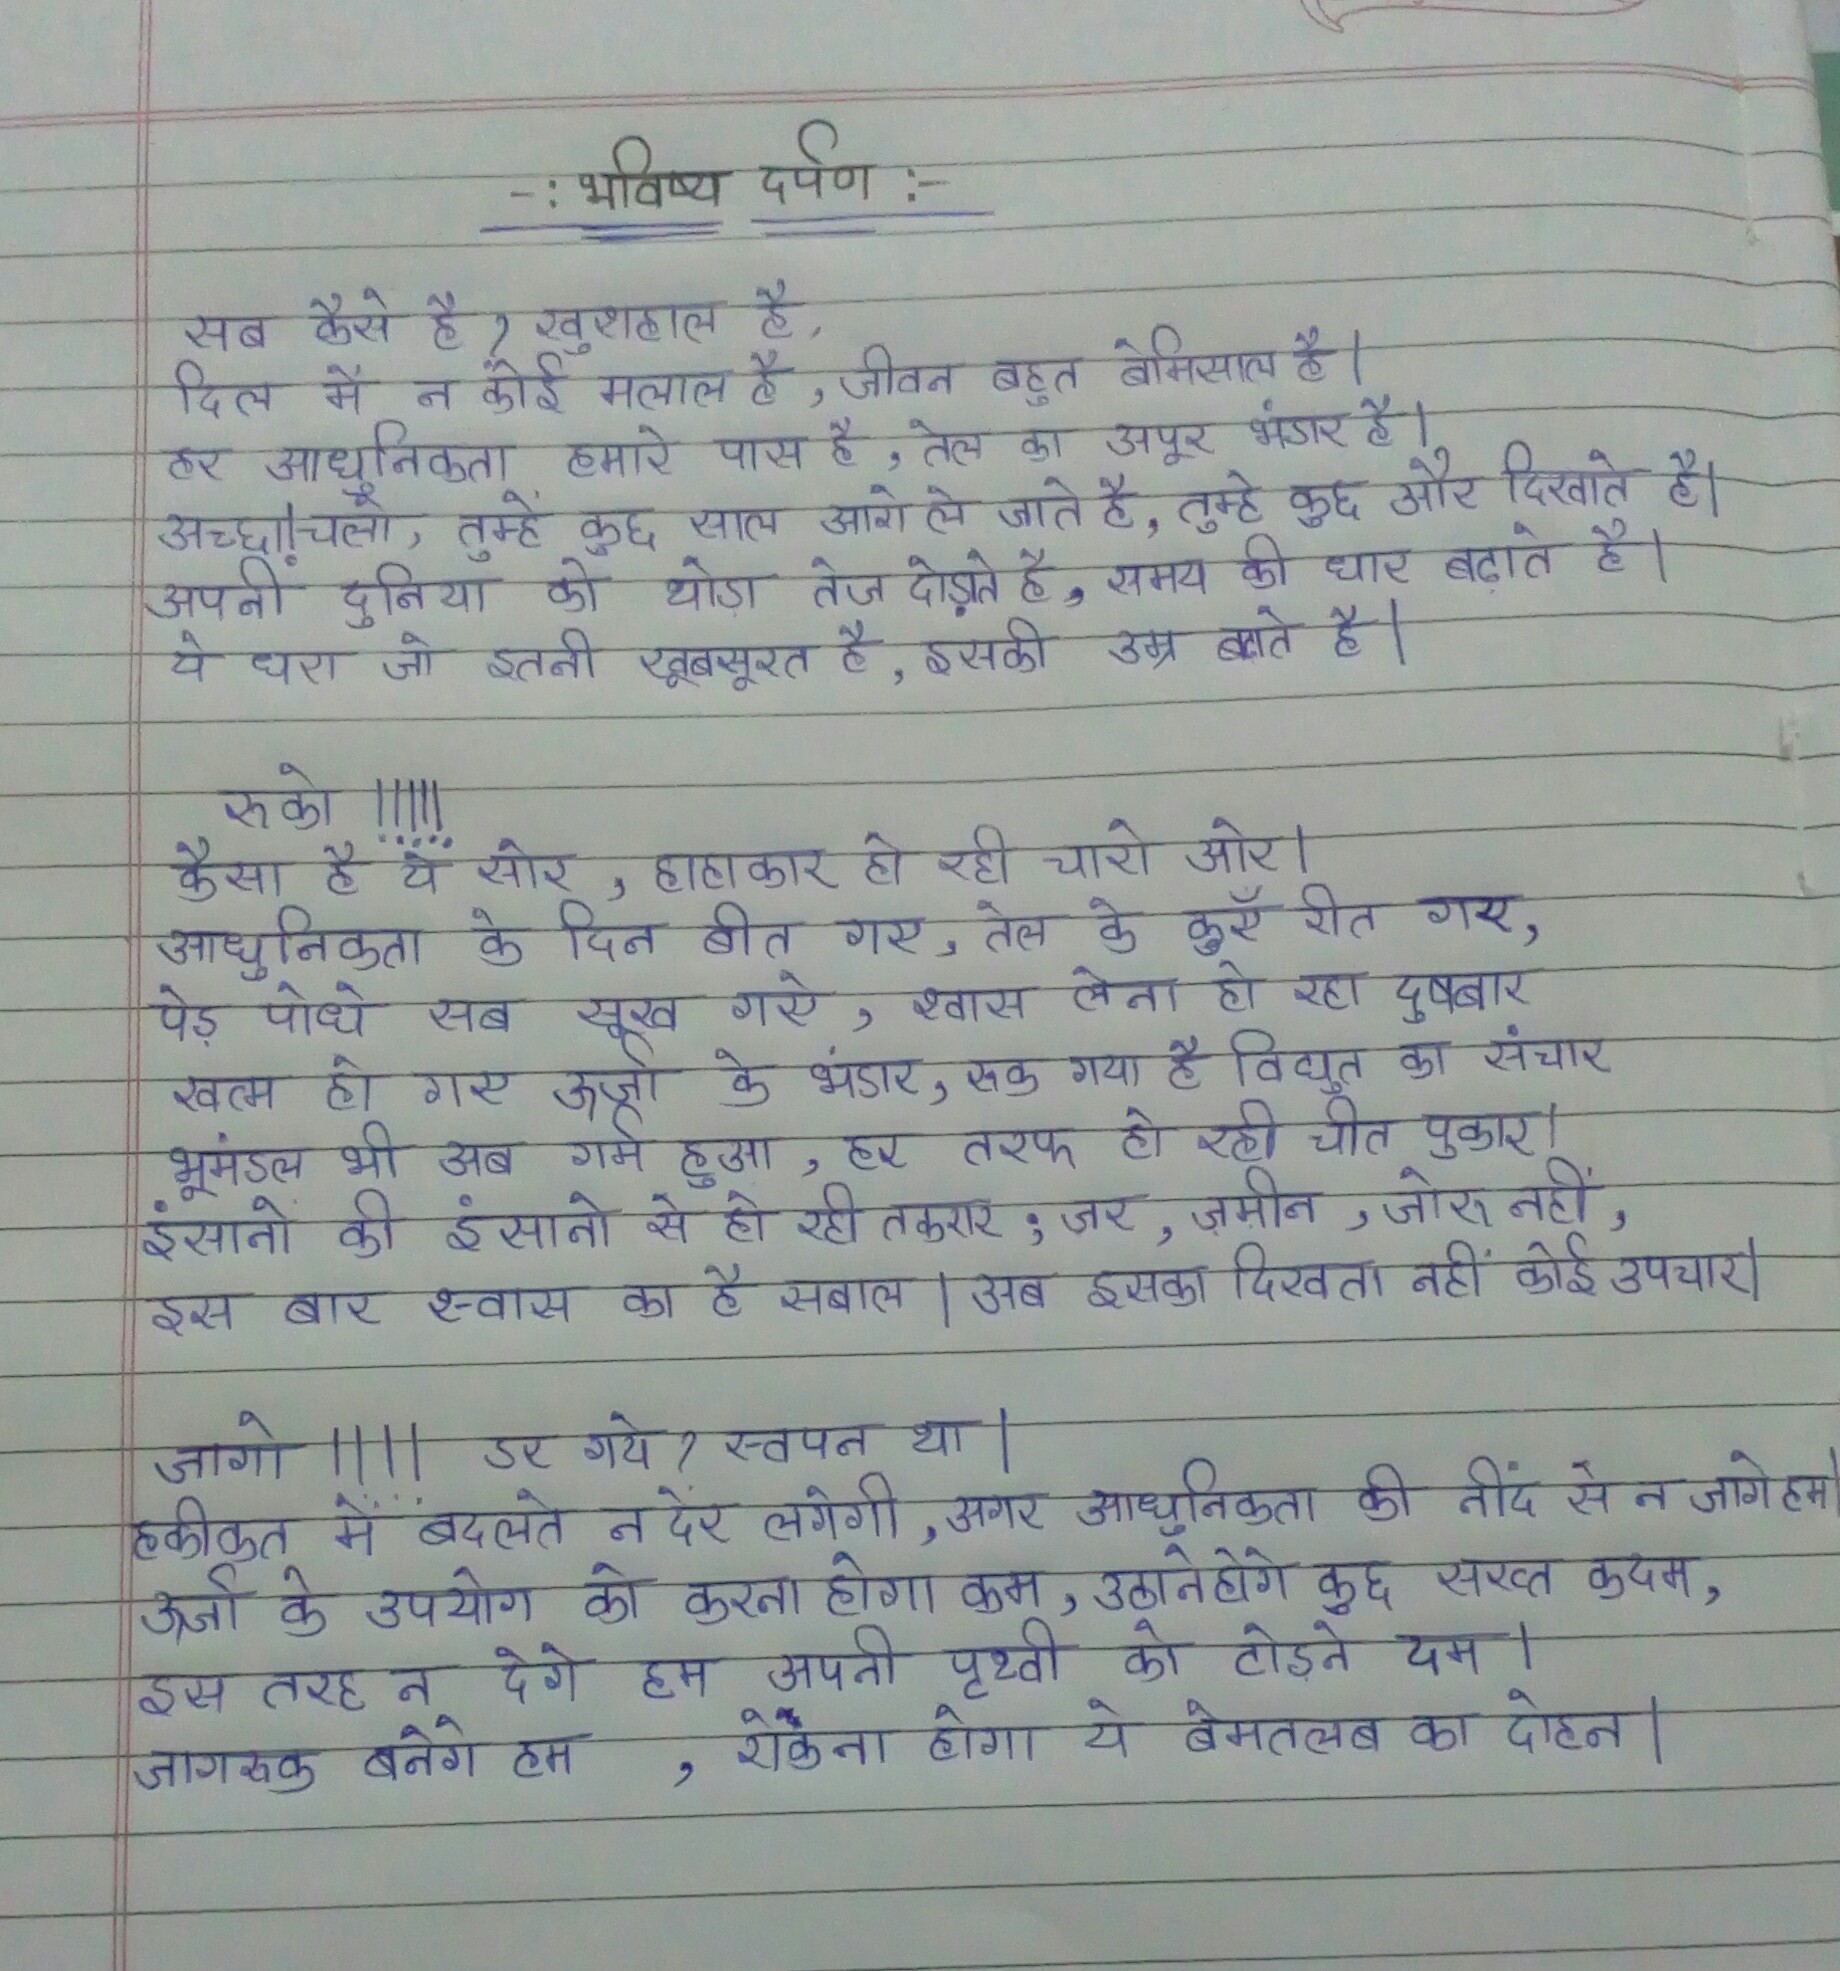 -: भविष्य दर्पण :-
सब कैसे है? खुशहाल है,
दिल मै न कोई मलाल है, जीवन बहुत बेमिसाल है।
हर आधुनिकता हमारे पास है, तेल का अपूर भंडार है।
अच्छा! चलो, तुम्हें कुछ साल आगे ले जाते है, तुम्हे कुछ और दिखाते है।
अपनी दुनिया को थोड़ा तेज दोड़ाते है, समय की धार बढ़ाते है।
ये धरा जो इतनी खूबसूरत है, इसकी उम्र बताते है।
रुको !!!!!
कैसा है ये सोर, हाहाकार हो रही चारो ओर।
आधुनिकता के दिन बीत गए, तेल के कुएँ रीत गए,
पेड़ पोधे सब सूख गऐ, श्वास लेना हो रहा दुषबार
खत्म हो गए ऊर्जा के भंडार, रूक गया है विद्युत का संचार
भूमंडल भी अब गर्म हुआ, हर तरफ हो रही चीत पुकार।
इंसानों की इंसानो से हो रही तकरार; जर, ज़मीन, जोरु नहीं,
इस बार श्वास का है सबाल। अब इसका दिखता नहीं कोई उपचार।
जागो !!!! डर गये? स्वपन था।
हकीकत में बदलते न देर लगेगी, अगर आधुनिकता की नींद से न जागे हम।
ऊर्जा के उपयोग को करना होगा कम, उठाने होगे कुछ सख्त कदम,
इस तरह न देगे हम अपनी पृथ्वी को टोड़ने दम।
जागरुक बनेगे हम, रोकना होगा ये बेमतलब का दोहन।